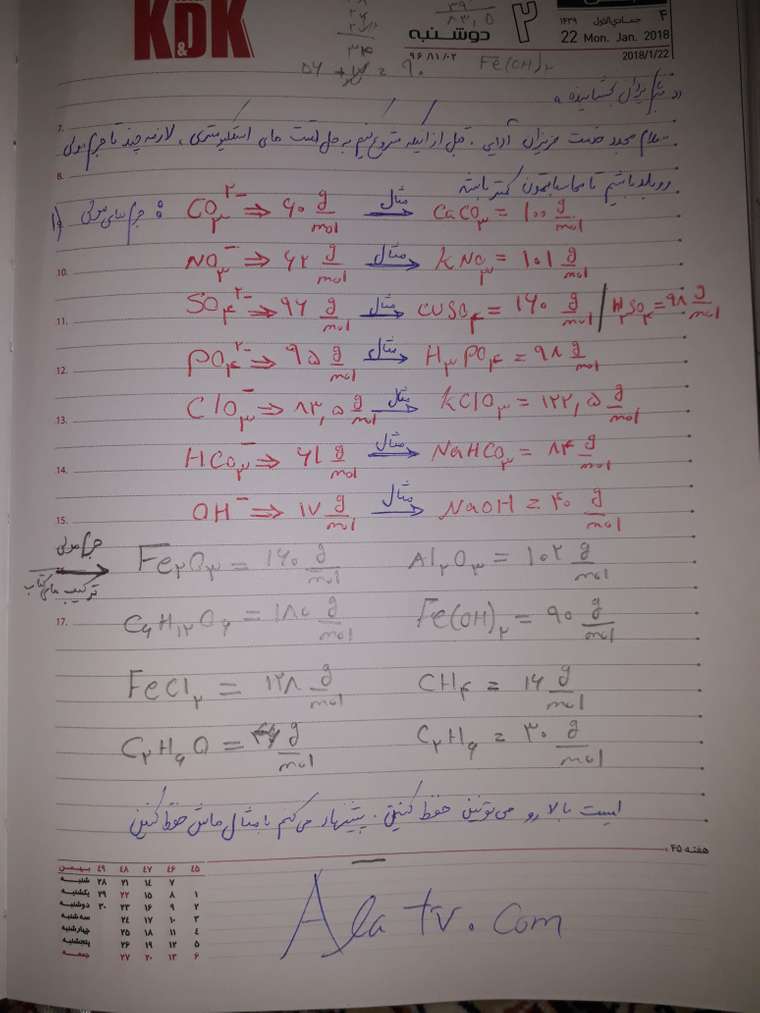 KDK
&
۲
دوشنبه
۹۶/۱۱/۰۲
۴ جمادی‌الاول ۱۴۳۹
22 Mon. Jan. 2018
2018/1/22
۳۹
۸۳,۵
۳۴
= ۹۰
Fe(OH)۲
به نام یزدان بخشاینده
7.
سلام مجدد خدمت عزیزان آلایی. قبل از اینکه شروع کنیم به حل تست های استوکیومتری، لازمه چند تا جرم مولی
8.
رو بلد باشیم تا محاسباتمون کمتر باشه
۱) جرم های مولی : CO۳ ۲− ⇒ ۶۰ g/mol مثال → CaCO۳ = ۱۰۰ g/mol
10. NO۳ − ⇒ ۶۲ g/mol مثال → KNO۳ = ۱۰۱ g/mol
11. SO۴ ۲− ⇒ ۹۶ g/mol مثال → CuSO۴ = ۱۶۰ g/mol / H۲SO۴ = ۹۸ g/mol
12. PO۴ ۲− ⇒ ۹۵ g/mol مثال → H۳PO۴ = ۹۸ g/mol
13. ClO۳ − ⇒ ۸۳,۵ g/mol مثال → KClO۳ = ۱۲۲,۵ g/mol
14. HCO۳ − ⇒ ۶۱ g/mol مثال → NaHCO۳ = ۸۴ g/mol
15. OH − ⇒ ۱۷ g/mol مثال → NaOH = ۴۰ g/mol
جرم مولی ترکیب های کتاب → Fe۲O۳ = ۱۶۰ g/mol Al۲O۳ = ۱۰۲ g/mol
17. C۶H۱۲O۶ = ۱۸۰ g/mol Fe(OH)۲ = ۹۰ g/mol
FeCl۲ = ۱۲۸ g/mol CH۴ = ۱۶ g/mol
C۲H۶O = ۴۶ g/mol C۲H۶ = ۳۰ g/mol
لیست بالا رو می‌تونین حفظ کنین. پیشنهاد می‌کنم با مثال هاش حفظ کنین
هفته ۴۵
بهمن ۴۹ ۴۸ ۴۷ ۴۶ ۴۵
شنبه ۲۸ ۲۱ ۱۴ ۷
یکشنبه ۲۹ ۲۲ ۱۵ ۸ ۱
دوشنبه ۳۰ ۲۳ ۱۶ ۹ ۲
سه شنبه ۲۴ ۱۷ ۱۰ ۳
چهارشنبه ۲۵ ۱۸ ۱۱ ۴
پنجشنبه ۲۶ ۱۹ ۱۲ ۵
جمعه ۲۷ ۲۰ ۱۳ ۶
Alatv.com